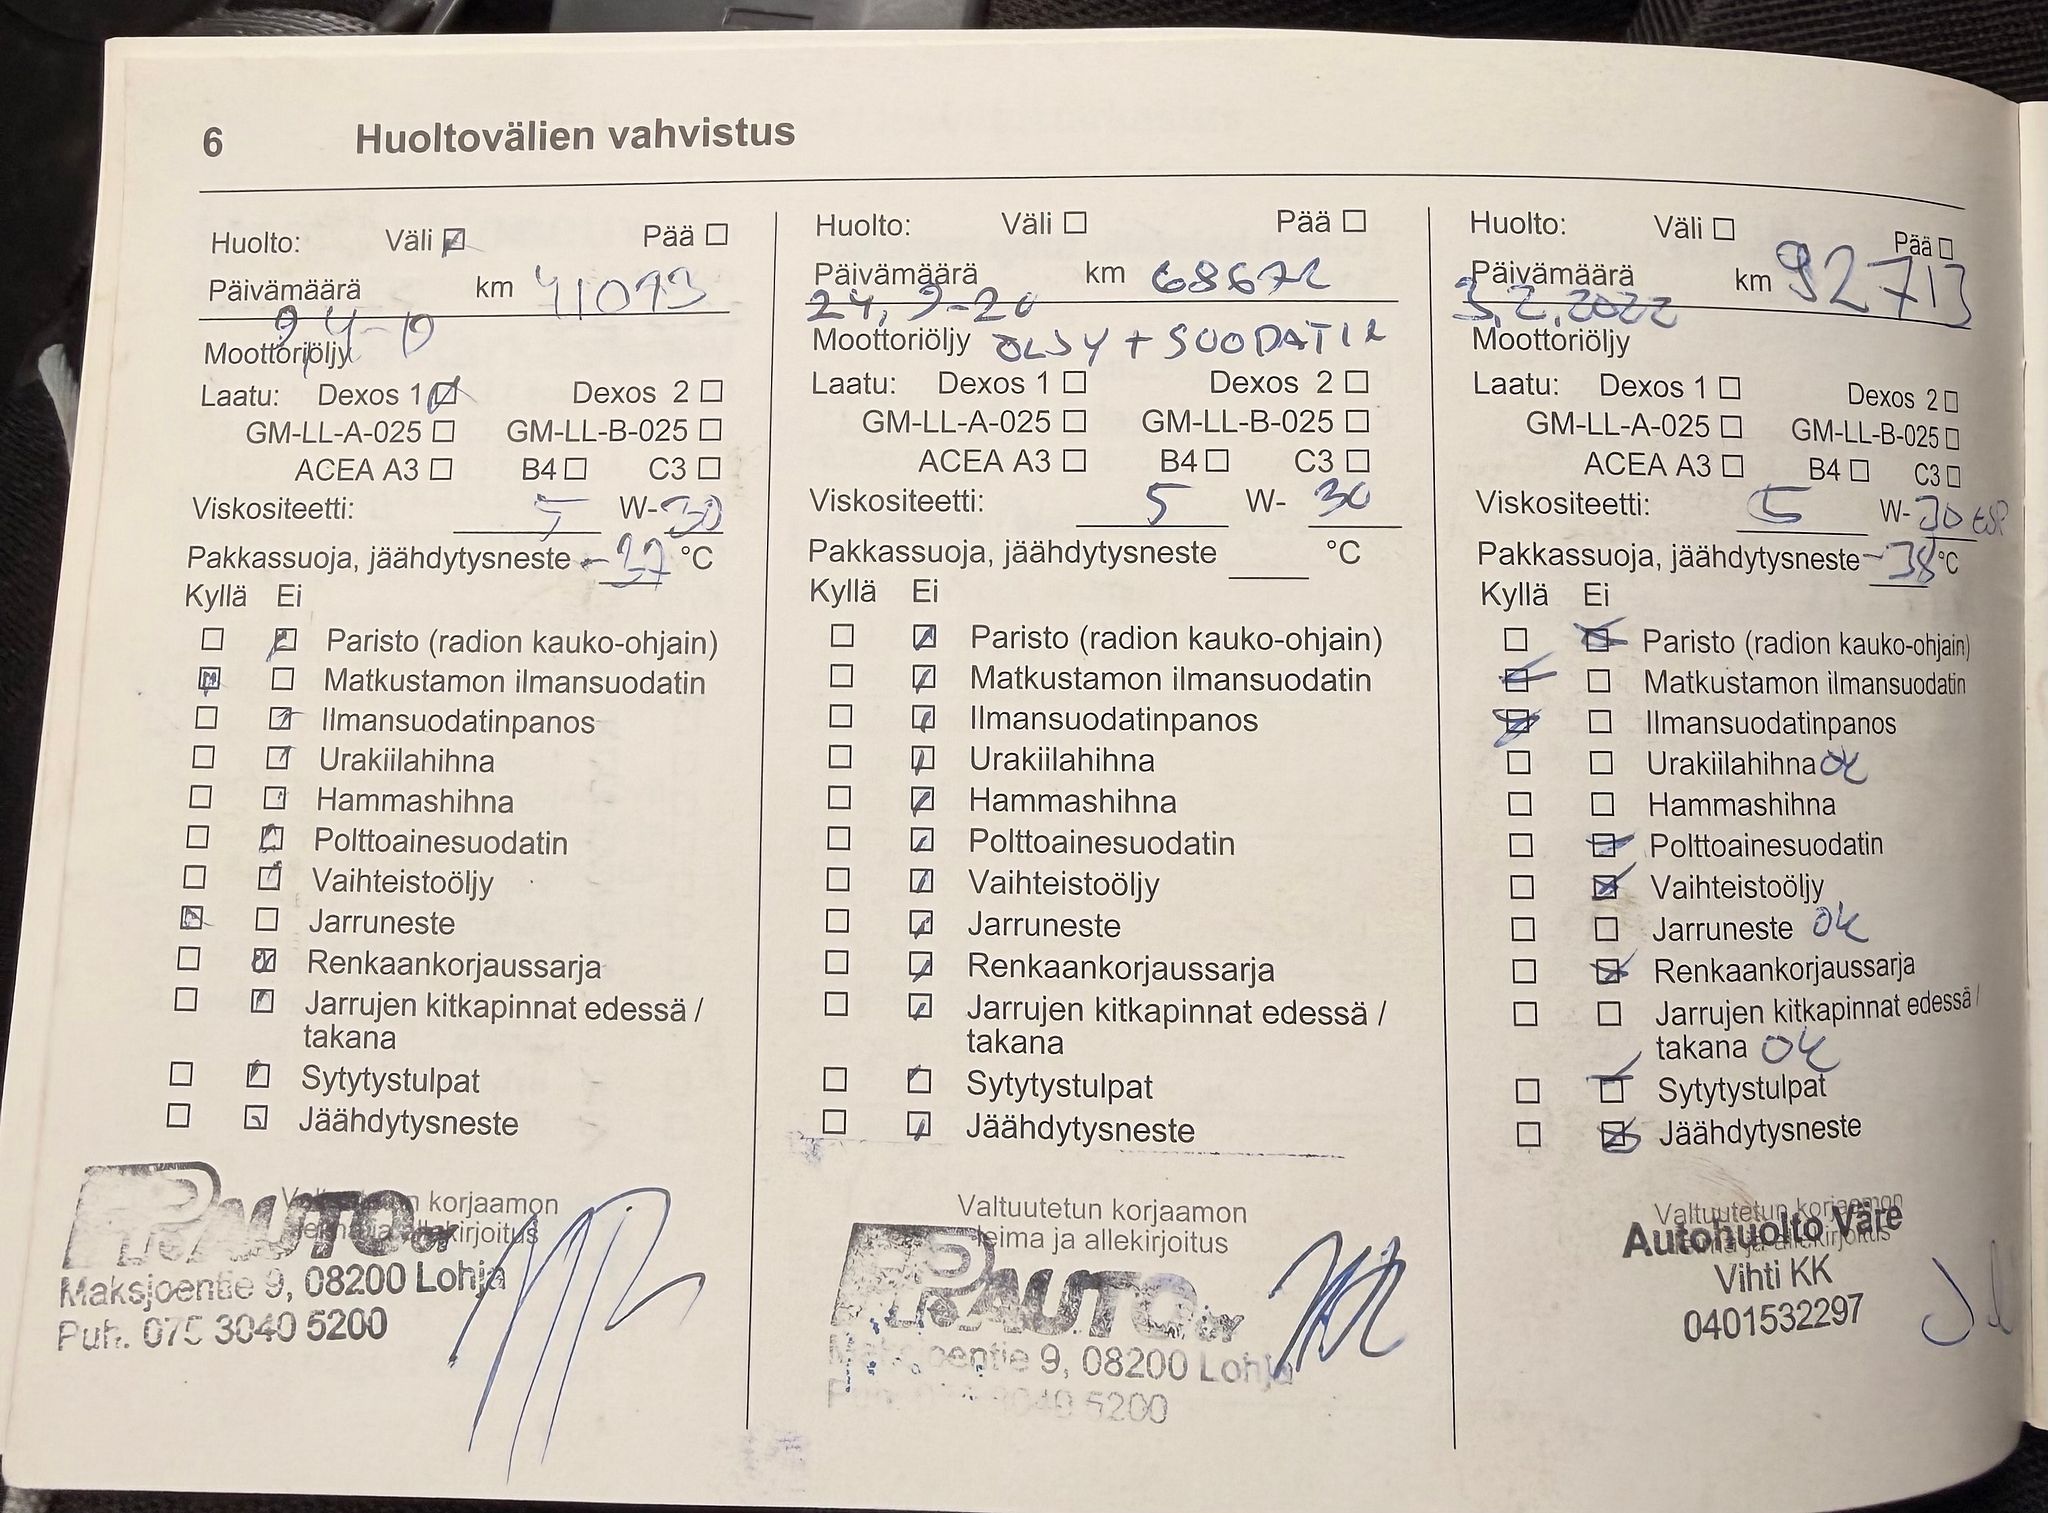 6 Huoltovälien vahvistus
Huolto: Väli Pää
Päivämäärä km 41073
9.4-19
Moottoriöljy
Laatu: Dexos 1 Dexos 2
GM-LL-A-025 GM-LL-B-025
ACEA A3 B4 C3
Viskositeetti: 5 W-30
Pakkassuoja, jäähdytysneste -37 °C
Kyllä Ei
Paristo (radion kauko-ohjain)
Matkustamon ilmansuodatin
Ilmansuodatinpanos
Urakiilahihna
Hammashihna
Polttoainesuodatin
Vaihteistoöljy
Jarruneste
Renkaankorjaussarja
Jarrujen kitkapinnat edessä /
takana
Sytytystulpat
Jäähdytysneste
Valtuutetun korjaamon
leima ja allekirjoitus
AUTO OY
Maksjoentie 9, 08200 Lohja
Puh. 075 3040 5200
Huolto: Väli Pää
Päivämäärä km 68672
24.9-20
Moottoriöljy ÖLJY + SUODATIN
Laatu: Dexos 1 Dexos 2
GM-LL-A-025 GM-LL-B-025
ACEA A3 B4 C3
Viskositeetti: 5 W- 30
Pakkassuoja, jäähdytysneste °C
Kyllä Ei
Paristo (radion kauko-ohjain)
Matkustamon ilmansuodatin
Ilmansuodatinpanos
Urakiilahihna
Hammashihna
Polttoainesuodatin
Vaihteistoöljy
Jarruneste
Renkaankorjaussarja
Jarrujen kitkapinnat edessä /
takana
Sytytystulpat
Jäähdytysneste
Valtuutetun korjaamon
leima ja allekirjoitus
AUTO OY
Maksjoentie 9, 08200 Lohja
Puh. 075 3040 5200
Huolto: Väli Pää
Päivämäärä km 92713
3.2.2022
Moottoriöljy
Laatu: Dexos 1 Dexos 2
GM-LL-A-025 GM-LL-B-025
ACEA A3 B4 C3
Viskositeetti: 5 W-30 ESP
Pakkassuoja, jäähdytysneste -38 °C
Kyllä Ei
Paristo (radion kauko-ohjain)
Matkustamon ilmansuodatin
Ilmansuodatinpanos
Urakiilahihna ok
Hammashihna
Polttoainesuodatin
Vaihteistoöljy
Jarruneste ok
Renkaankorjaussarja
Jarrujen kitkapinnat edessä /
takana ok
Sytytystulpat
Jäähdytysneste
Valtuutetun korjaamon
leima ja allekirjoitus
Autohuolto Väre
Vihti KK
0401532297